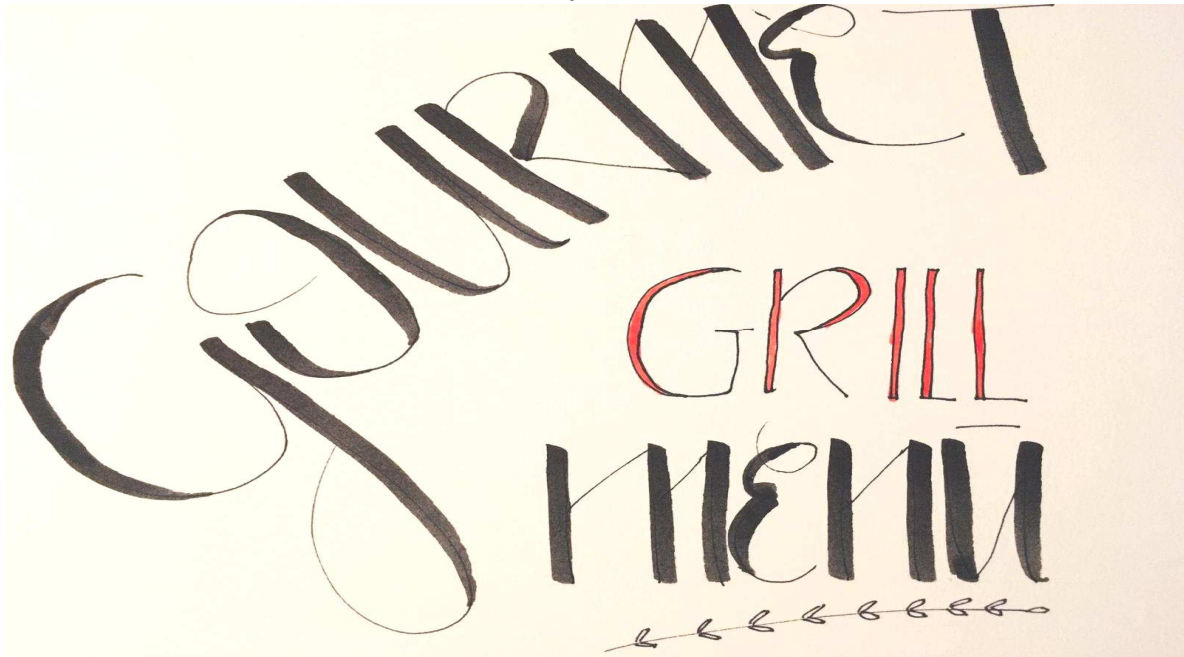 GOURMET
GRILL
MENŪ